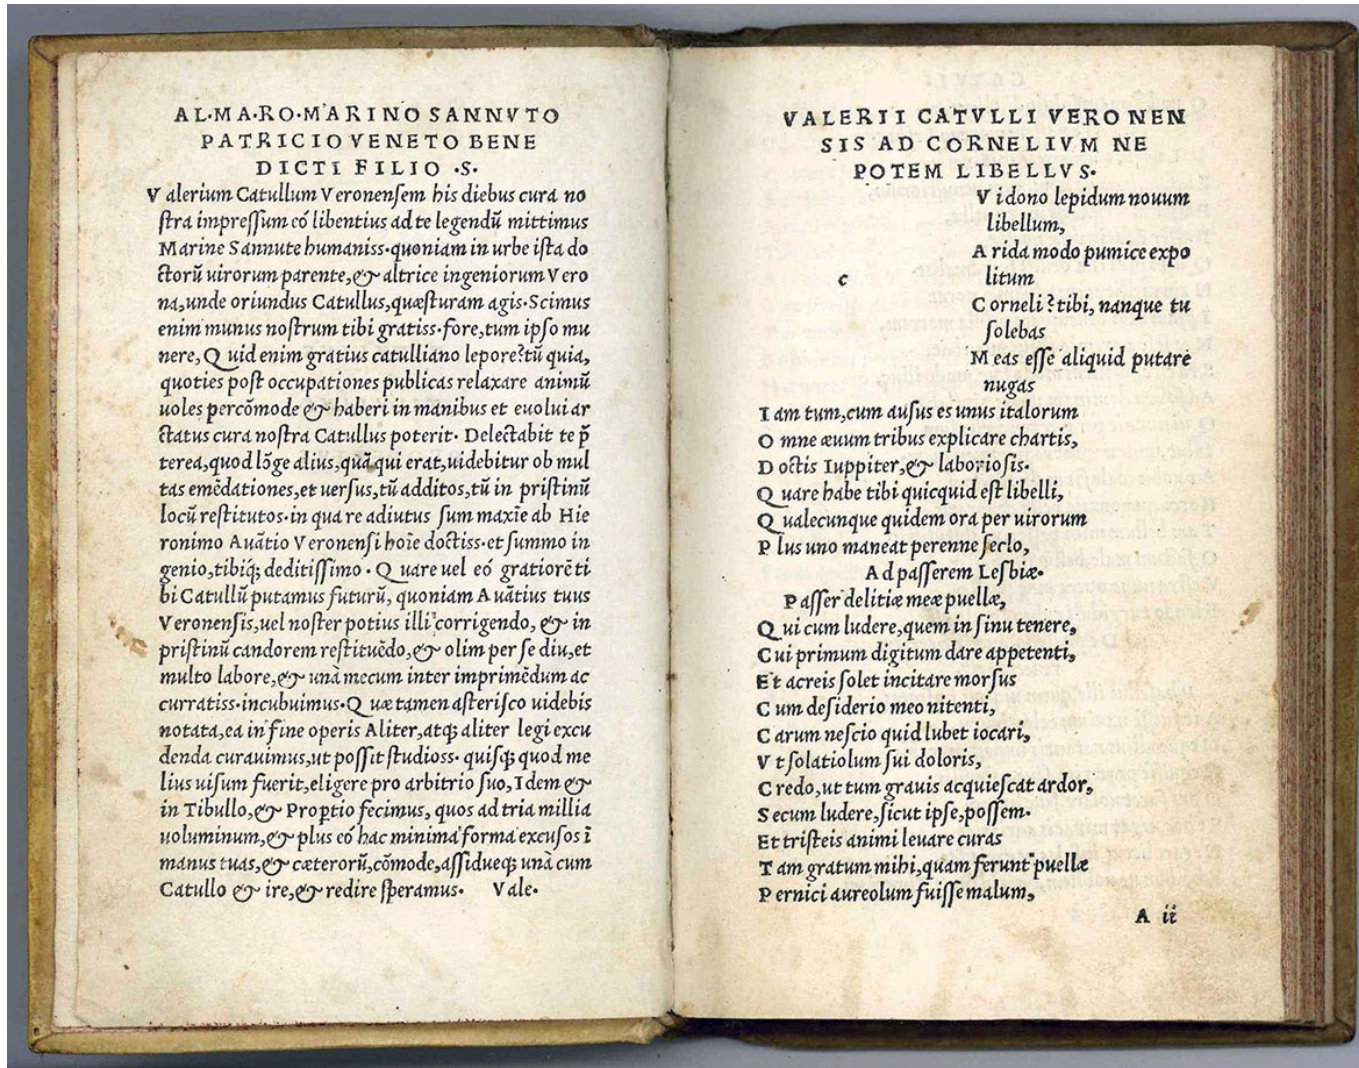 AL·MA·RO·MARINO SANNVTO
PATRICIO VENETO BENE
DICTI FILIO ·S·
V alerium Catullum Veronensem his diebus cura no
stra impressum eó libentius ad te legendū mittimus
Marine Sannute humaniss·quoniam in urbe ista do
ctorū uirorum parente,& altrice ingeniorum Vero
na,unde oriundus Catullus,quæsturam agis·Scimus
enim munus nostrum tibi gratiss·fore,tum ipso mu
nere, Quid enim gratius catulliano lepore?tū quia,
quoties post occupationes publicas relaxare animū
uoles percōmode & haberi in manibus et euolui ar
ctatus cura nostra Catullus poterit· Delectabit te p̄
terea,quod lōge alius,quā qui erat,uidebitur ob mul
tas emēdationes,et uersus,tū additos,tū in pristinū
locū restitutos·in qua re adiutus sum maxie ab Hie
ronimo Auātio Veronensi hoīe doctiss·et summo in
genio,tibiq; deditissimo · Quare uel eó gratiorē ti
bi Catullū putamus futurū, quoniam Auātius tuus
Veronensis,uel noster potius illi corrigendo, & in
pristinū candorem restituēdo,& olim per se diu,et
multo labore,& unà mecum inter imprimēdum ac
curratiss·incubuimus·Quæ tamen asterisco uidebis
notata,ea in fine operis Aliter,atq; aliter legi excu
denda curauimus,ut possit studioss· quisq; quod me
lius uisum fuerit,eligere pro arbitrio suo, Idem &
in Tibullo,& Proptio fecimus, quos ad tria millia
uoluminum,& plus eó hac minima forma excusos ī
manus tuas,& cæterorū,cōmode,assidueq; unà cum
Catullo & ire,& redire speramus· Vale·
VALERII CATVLLI VERONEN
SIS AD CORNELIVM NE
POTEM LIBELLVS·
c
V i dono lepidum nouum
libellum,
A rida modo pumice expo
litum
C orneli? tibi, nanque tu
solebas
M eas esse aliquid putare
nugas
I am tum,cum ausus es unus italorum
O mne æuum tribus explicare chartis,
D octis Iuppiter,& laboriosis·
Q uare habe tibi quicquid est libelli,
Q ualecunque quidem ora per uirorum
P lus uno maneat perenne seclo,
Ad passerem Lesbiæ·
P asser delitiæ meæ puellæ,
Q ui cum ludere,quem in sinu tenere,
C ui primum digitum dare appetenti,
Et acreis solet incitare morsus
C um desiderio meo nitenti,
C arum nescio quid lubet iocari,
V t solatiolum sui doloris,
C redo,ut tum grauis acquiescat ardor,
S ecum ludere,sicut ipse,possem·
Et tristeis animi leuare curas
T am gratum mihi,quam ferunt puellæ
P ernici aureolum fuisse malum,
A ii